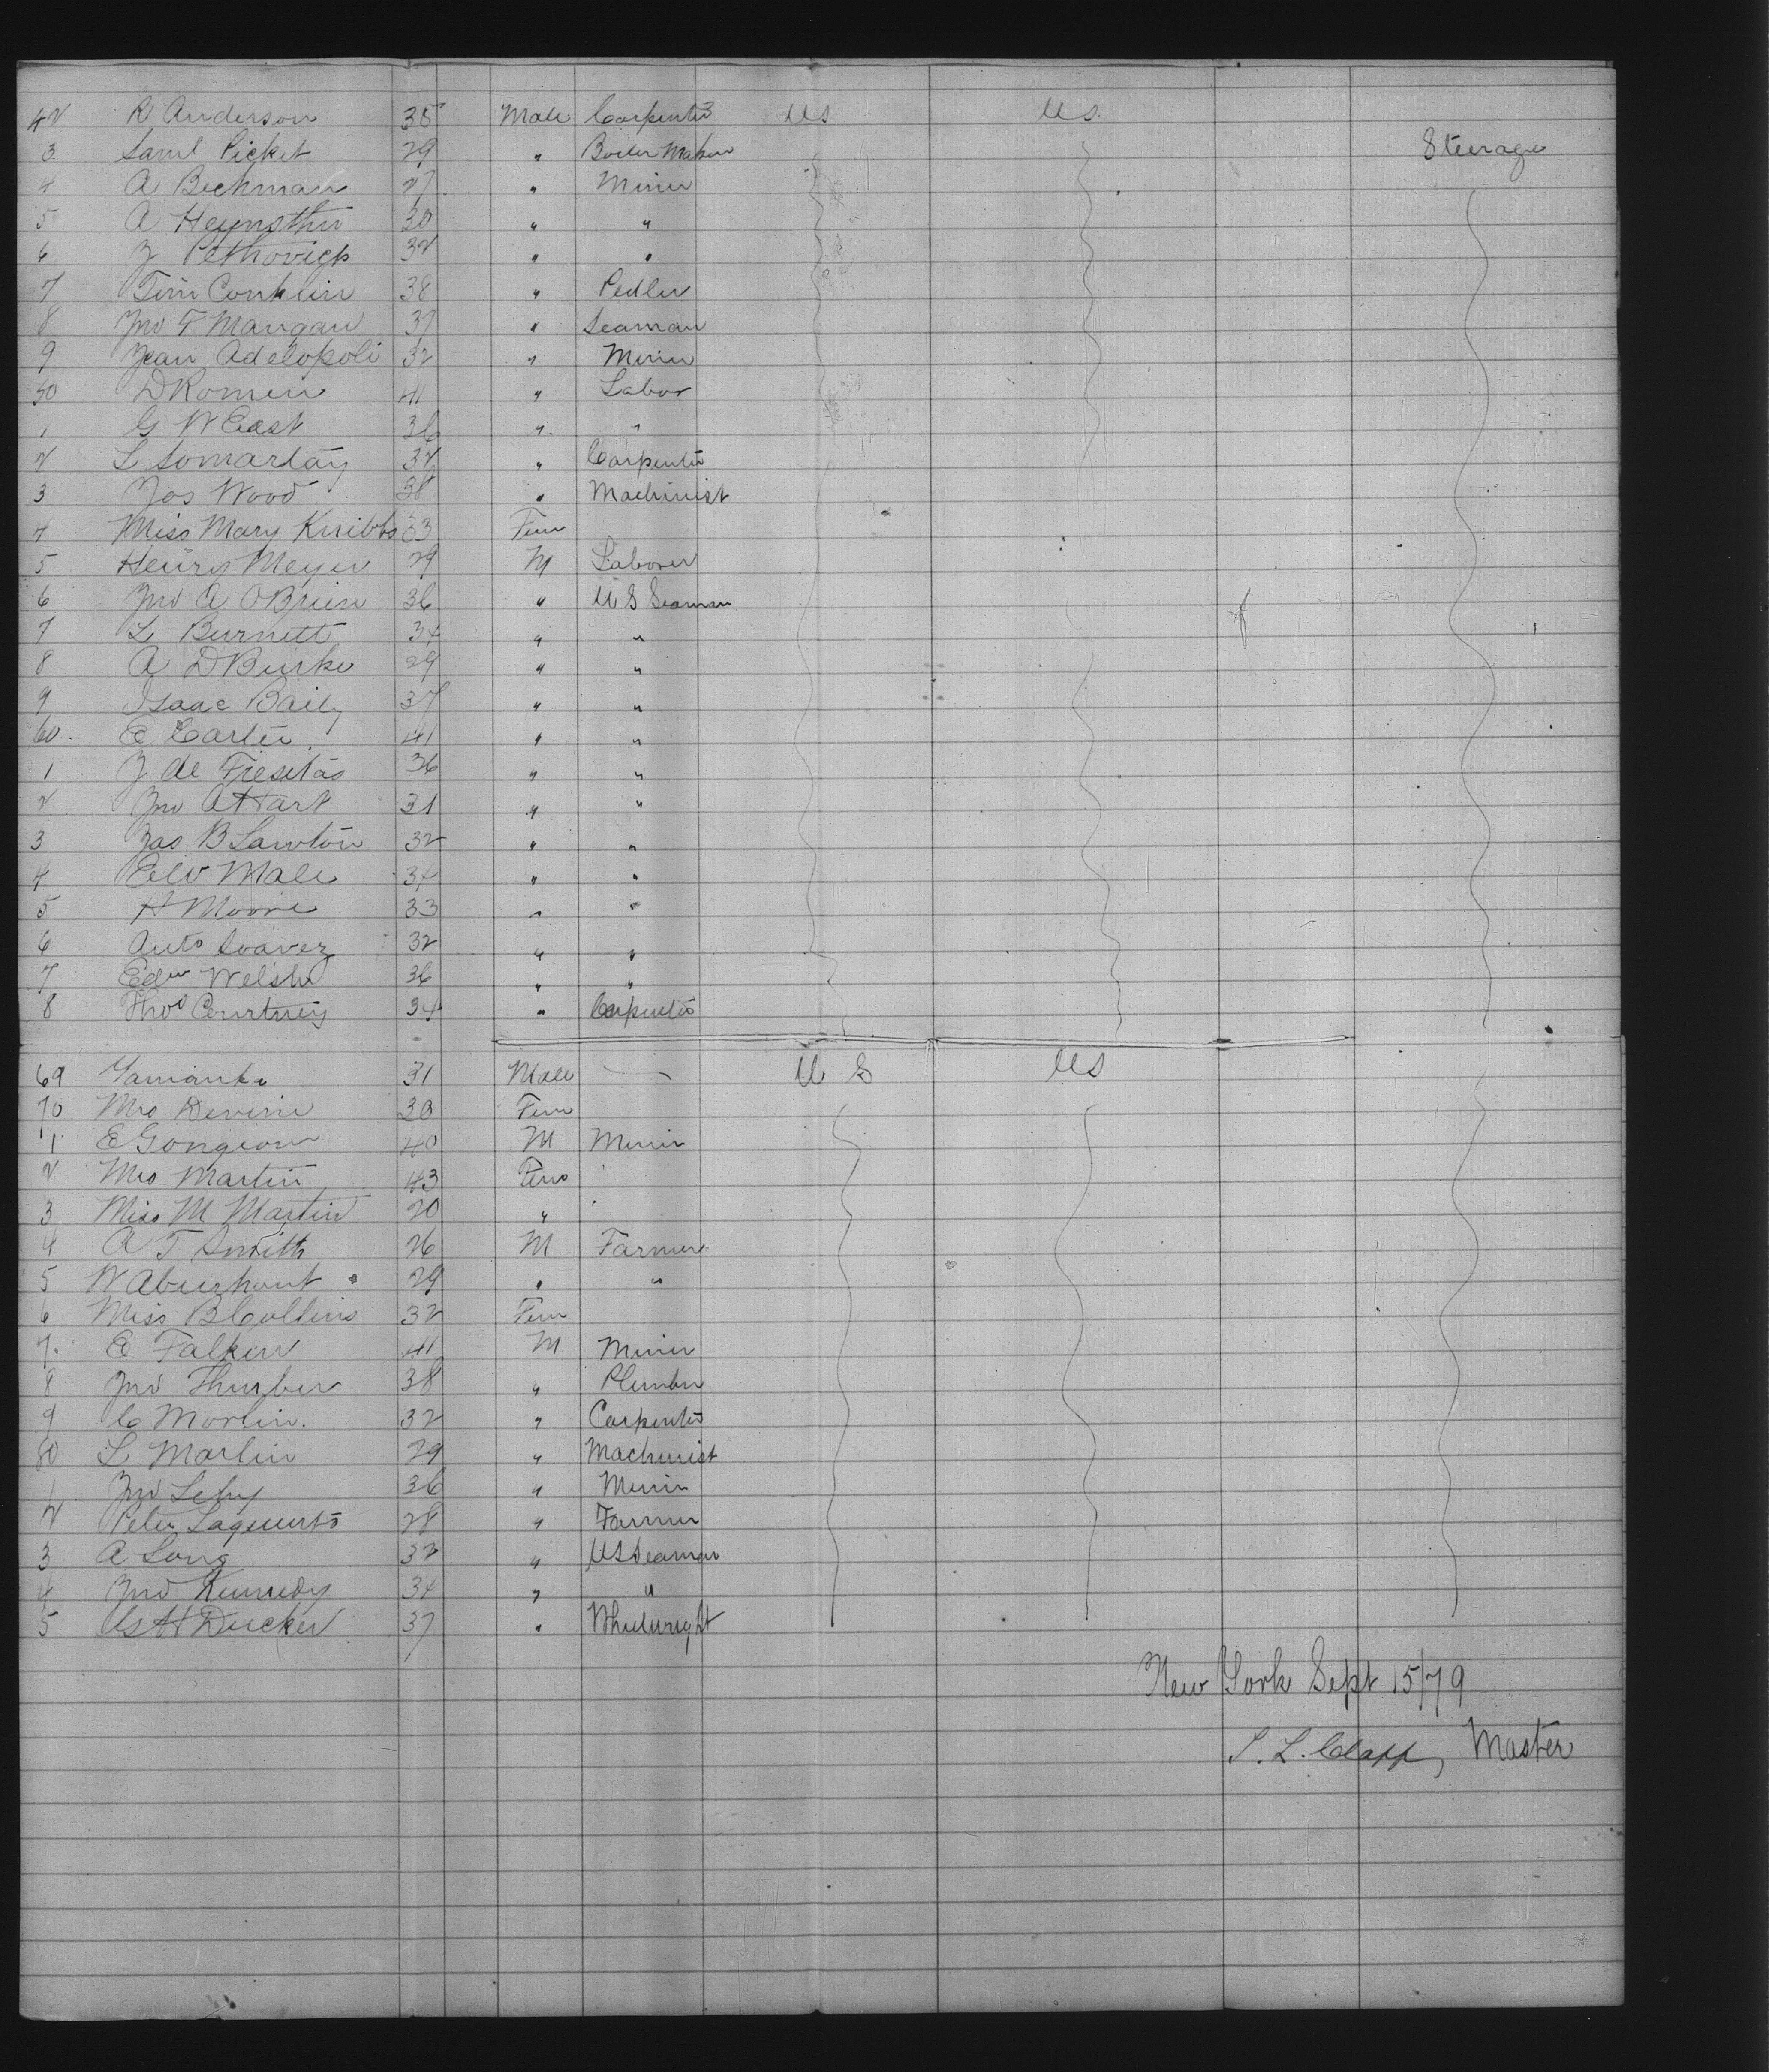 42 R Anderson 35 Male Carpenter US US
3 Saml Picket 29 " Boiler Maker Steerage
4 A Beckman 27 " Miner
5 A 30 " "
6 J Pethovick 32 " "
7 Tim Conklin 38 " Pedler
8 Jno F Mangan 37 " Seaman
9 Jean Adelopoli 32 " Miner
50 D Romen 41 " Labor
1 G W East 36 " "
2 L 32 " Carpenter
3 Jos Wood 38 " Machinist
4 Miss Mary Knibbs 33 Fem
5 Henry Meyer 29 M Laborer
6 Jno A OBrien 36 " U S Seaman
7 L Burnett 34 " "
8 A D Burke 29 " "
9 Isaac Baily 37 " "
60 E Carter 41 " "
1 J de Fresitas 36 " "
2 Jno A Hart 31 " "
3 Jas B Lawton 32 " "
4 Male 34 " "
5 H Moore 33 " "
6 Anto Soavez 32 " "
7 Edw Welsh 36 " "
8 Thos Courtney 34 " Carpenter
69 Yamanka 31 Male — U S US
70 Mrs Devine 30 Fem
1 E 40 M Miner
2 Mrs Martin 43 Fem
3 Miss M Martin 20 "
4 A T Smith 26 M Farmer
5 W 29 " "
6 Miss B Collins 32 Fem
7 E Falken 41 M Miner
8 Jno Thurber 38 " Plumber
9 C Morlin 32 " Carpenter
80 L Marlin 29 " Machinist
1 Jno 36 " Miner
2 Peter 28 " Farmer
3 A Long 32 " US Seaman
4 Jno Kennedy 34 " "
5 H Ducker 37 " Wheelwright
New York Sept 15/79
S. L. Clapp, Master